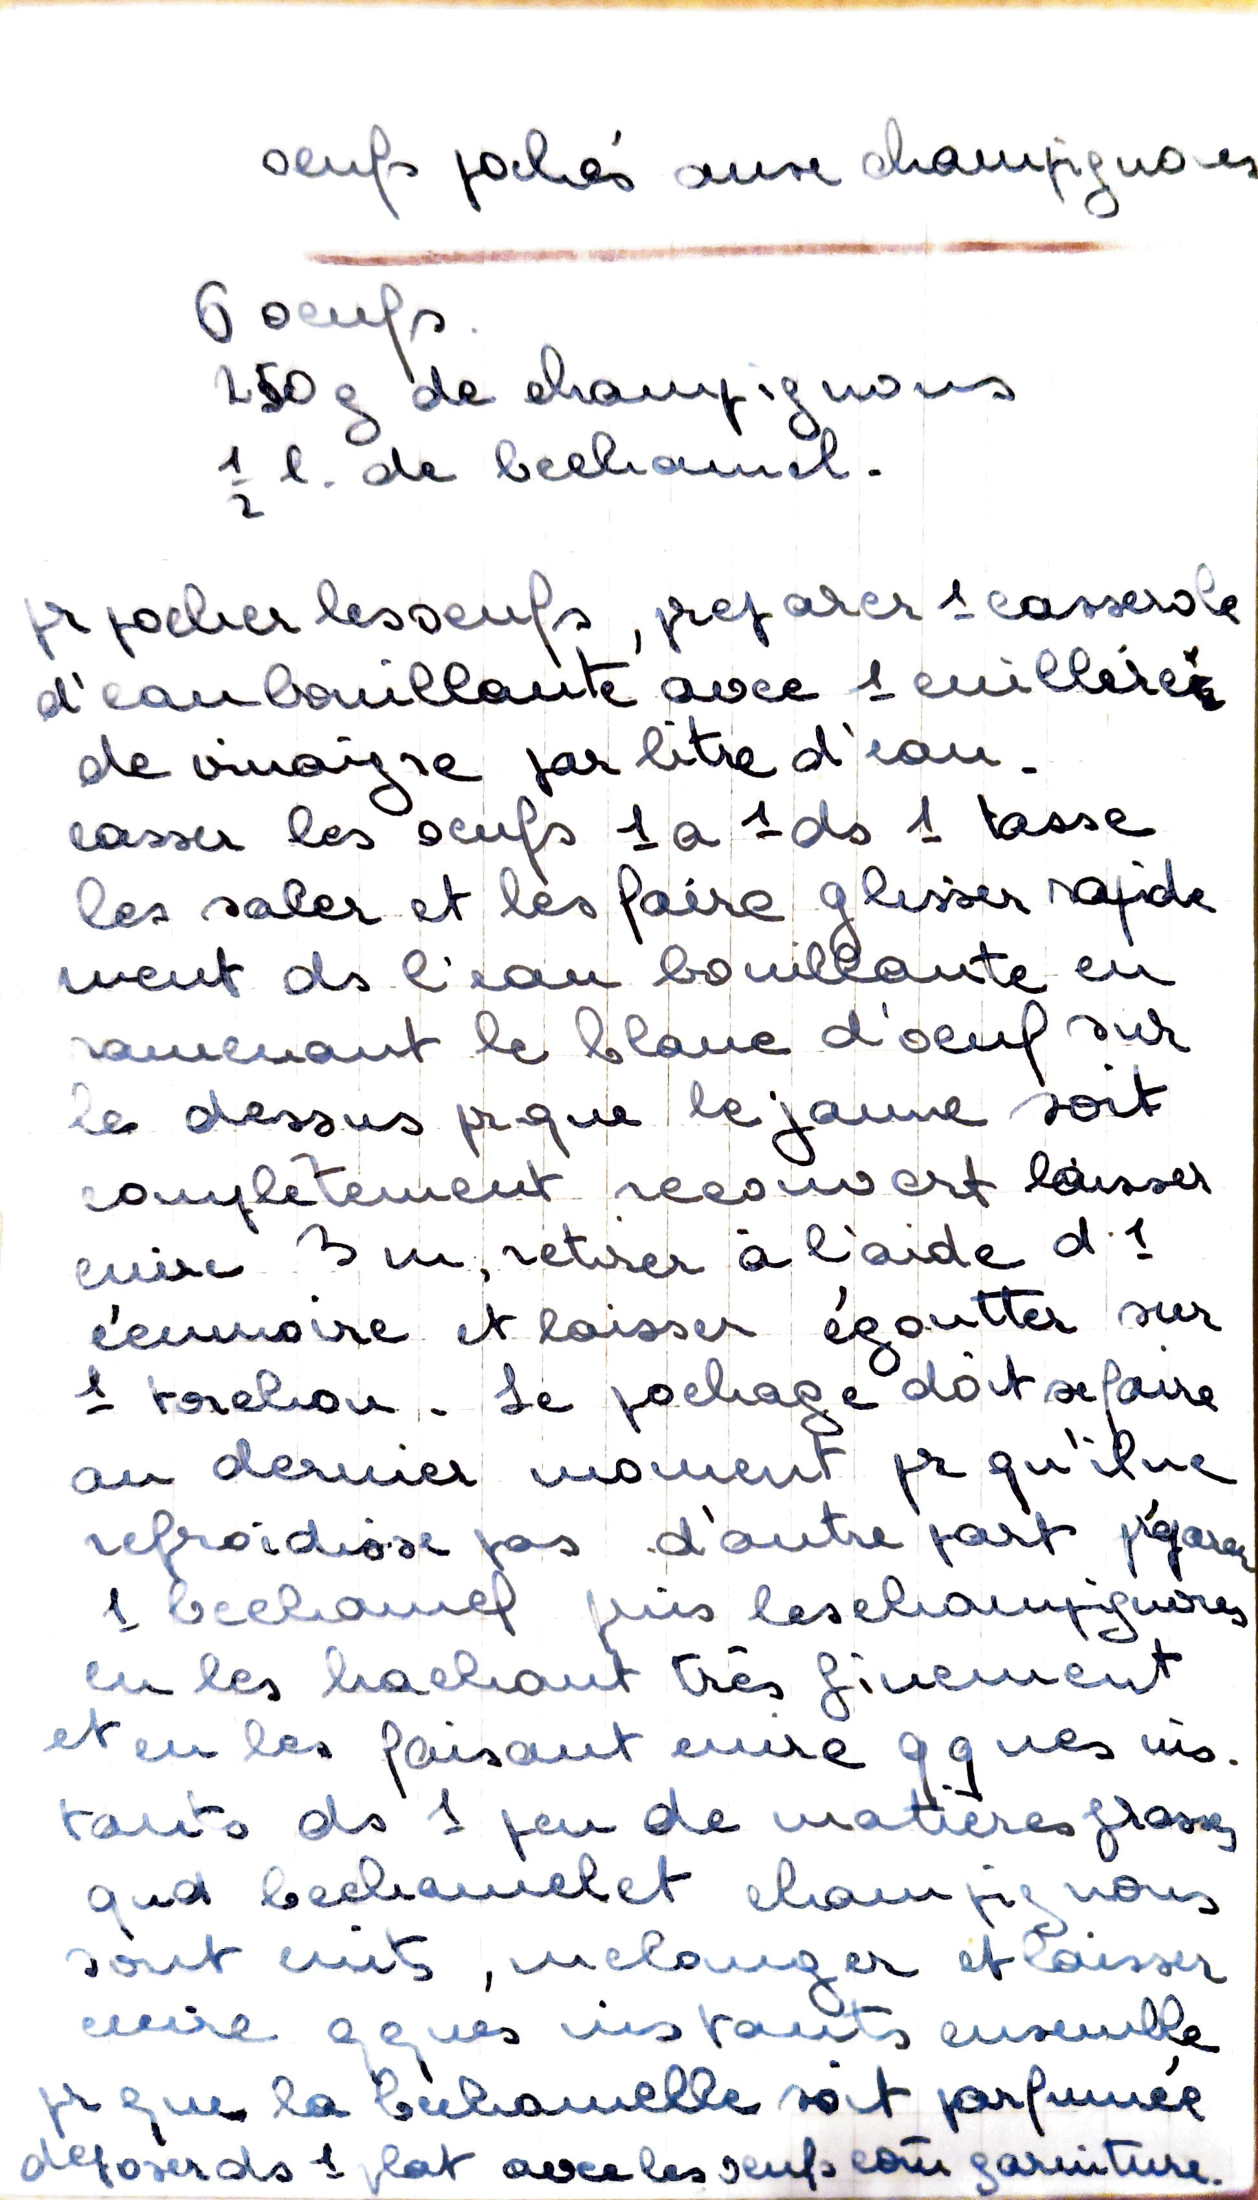 oeufs pochés aux champignons
6 oeufs.
250 g de champignons
1/2 l. de bechamel.
pr pocher les oeufs, preparer 1 casserole
d'eau bouillante avec 1 cuillère
de vinaigre par litre d'eau.
casser les oeufs 1 a 1 ds 1 tasse
les saler et les faire glisser rapide
ment ds l'eau bouillante en
ramenant le blanc d'oeuf sur
le dessus pr que le jaune soit
complètement recouvert laisser
cuire 3 m, retirer à l'aide d'1
écumoire et laisser égoutter sur
1 torchon. Le pochage doit se faire
au dernier moment pr qu'il ne
refroidisse pas d'autre part
1 bechamel puis les champignons
en les hachant très finement
et en les faisant cuire qques ins.
tants ds 1 peu de matières grasses
qud bechamel et champignons
sont cuits, melanger et laisser
cuire qques instants ensemble
pr que la bechamelle soit parfumée
deposer ds 1 plat avec les oeufs com garniture.